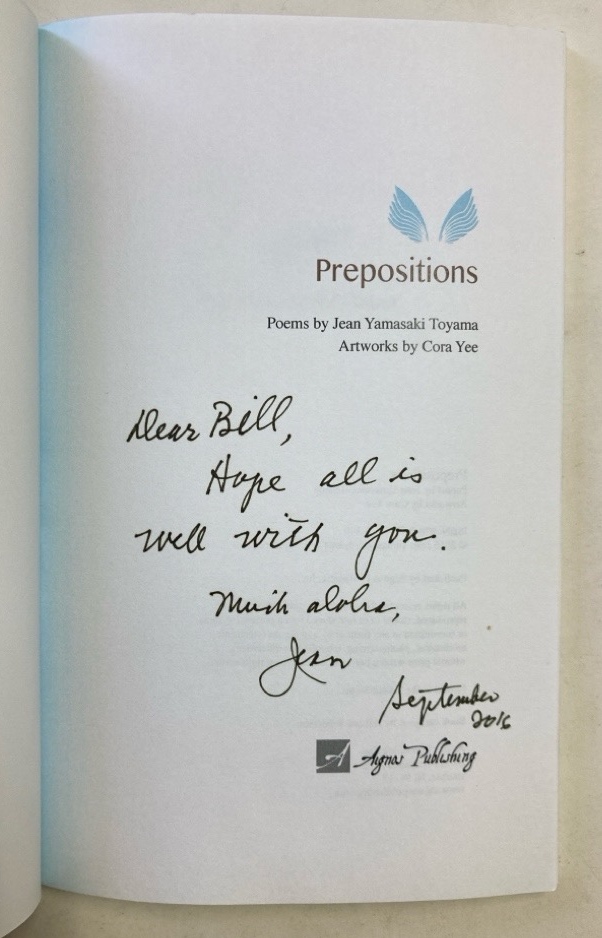 Prepositions
Poems by Jean Yamasaki Toyama
Artworks by Cora Yee
Dear Bill,
Hope all is
well with you.
Much aloha,
Jean
September
2016
A Aignos Publishing